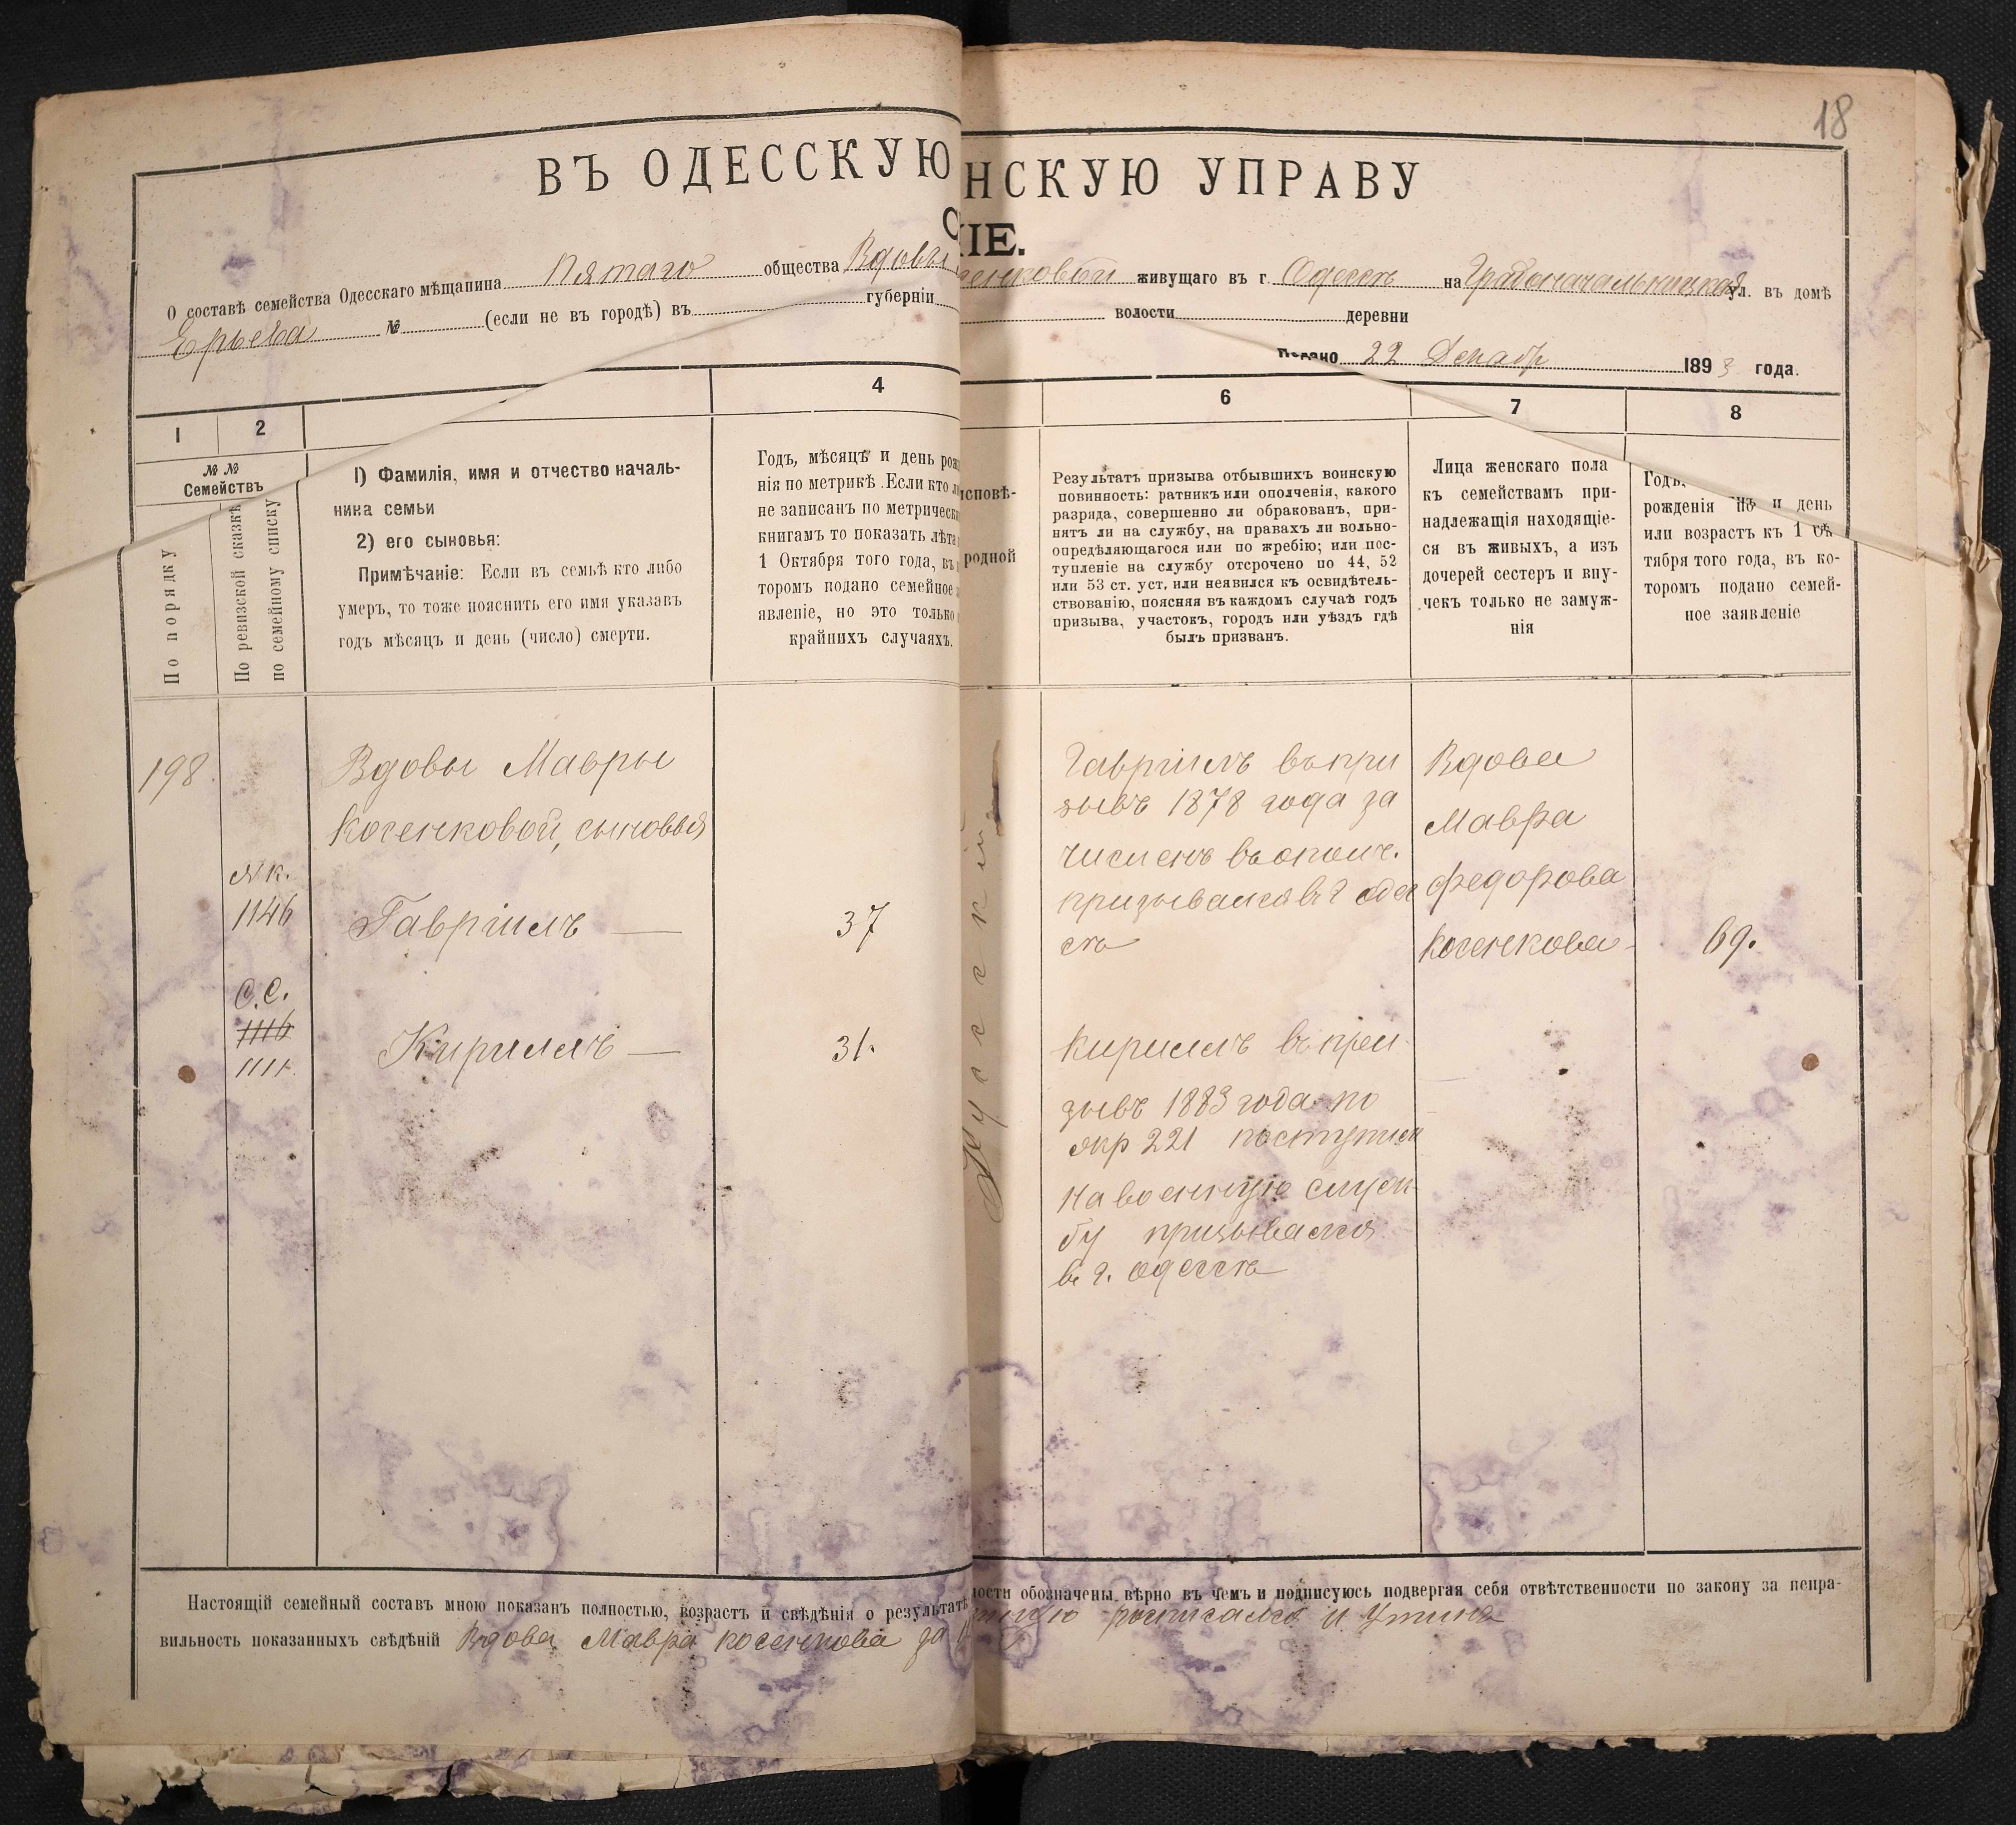 18
ВЪ ОДЕССКУЮ
НСКУЮ УПРАВУ
ІЕ.
О составѣ семейства Одесскаго мѣщанина Пятаго общества Вдовы
енковой живущаго въ г. Одессѣ на Градоначальницкая ул. въ домѣ
Ерьева № (если не въ городѣ) въ губерніи
волости деревни
22 Декабр 1893 года.
1 2 4 6 7 8
№ №
Семействъ
По порядку
По ревизской сказкѣ
по семейному списку
1) Фамилія, имя и отчество началь-
ника семьи
2) его сыновья:
Примѣчаніе: Если въ семьѣ кто либо
умеръ, то тоже пояснить его имя указавъ
годъ мѣсяцъ и день (число) смерти.
Годъ, мѣсяцъ и день рож
нія по метрикѣ. Если кто
не записанъ по метрическ
книгамъ то показать лѣта
1 Октября того года, въ
торомъ подано семейное
явленіе, но это только
крайнихъ случаяхъ.
исповѣ-
родной
Результатъ призыва отбывшихъ воинскую
повинность: ратникъ или ополченія, какого
разряда, совершенно ли обракованъ, при-
нятъ ли на службу, на правахъ ли вольно-
опредѣляющагося или по жребію; или пос-
тупленіе на службу отсрочено по 44, 52
или 53 ст. уст, или неявился къ освидѣтель-
ствованію, поясняя въ каждомъ случаѣ годъ
призыва, участокъ, городъ или уѣздъ гдѣ
былъ призванъ.
Лица женскаго пола
къ семействамъ при-
надлежащія находящіе-
ся въ живыхъ, а изъ
дочерей сестеръ и вну-
чекъ только не замуж-
нія
Годъ,
и день
рожденія по
или возрастъ къ 1 Ок
тября того года, въ ко-
торомъ подано семей-
ное заявленіе
198.
Вдовы Мавры
Коченковой, сыновья
Н к.
1146
Гавріилъ — 37
С. С.
1116
1111.
Кириллъ — 31.
Русскій
Гавріилъ въ при
зывъ 1878 года за
численъ въ ополч.
призывался в г одес
сѣ
Кириллъ въ при
зывъ 1883 года по
жр 221 поступил
на военную служ
бу призывался
в г. одессѣ
Вдова
Мавра
Федорова
Коченкова
69.
Настоящій семейный составъ мною показанъ полностью, возрастъ и свѣдѣнія о результатѣ
ности обозначены вѣрно въ чемъ и подписуюсь подвергая себя отвѣтственности по закону за непра-
вильность показанныхъ свѣдѣній Вдова Мавра косенкова за
росписался